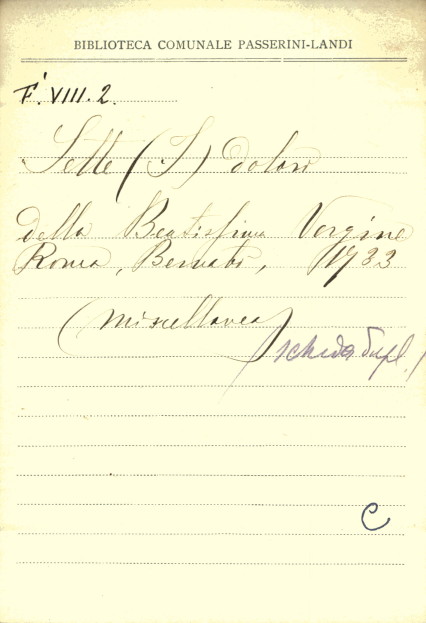 BIBLIOTECA COMUNALE PASSERINI-LANDI
F. VIII. 2.
Sette (I) dolori
della Beatissima Vergine
Roma, Bernabò, 1733
(miscellanea)
(scheda dupl.)
C